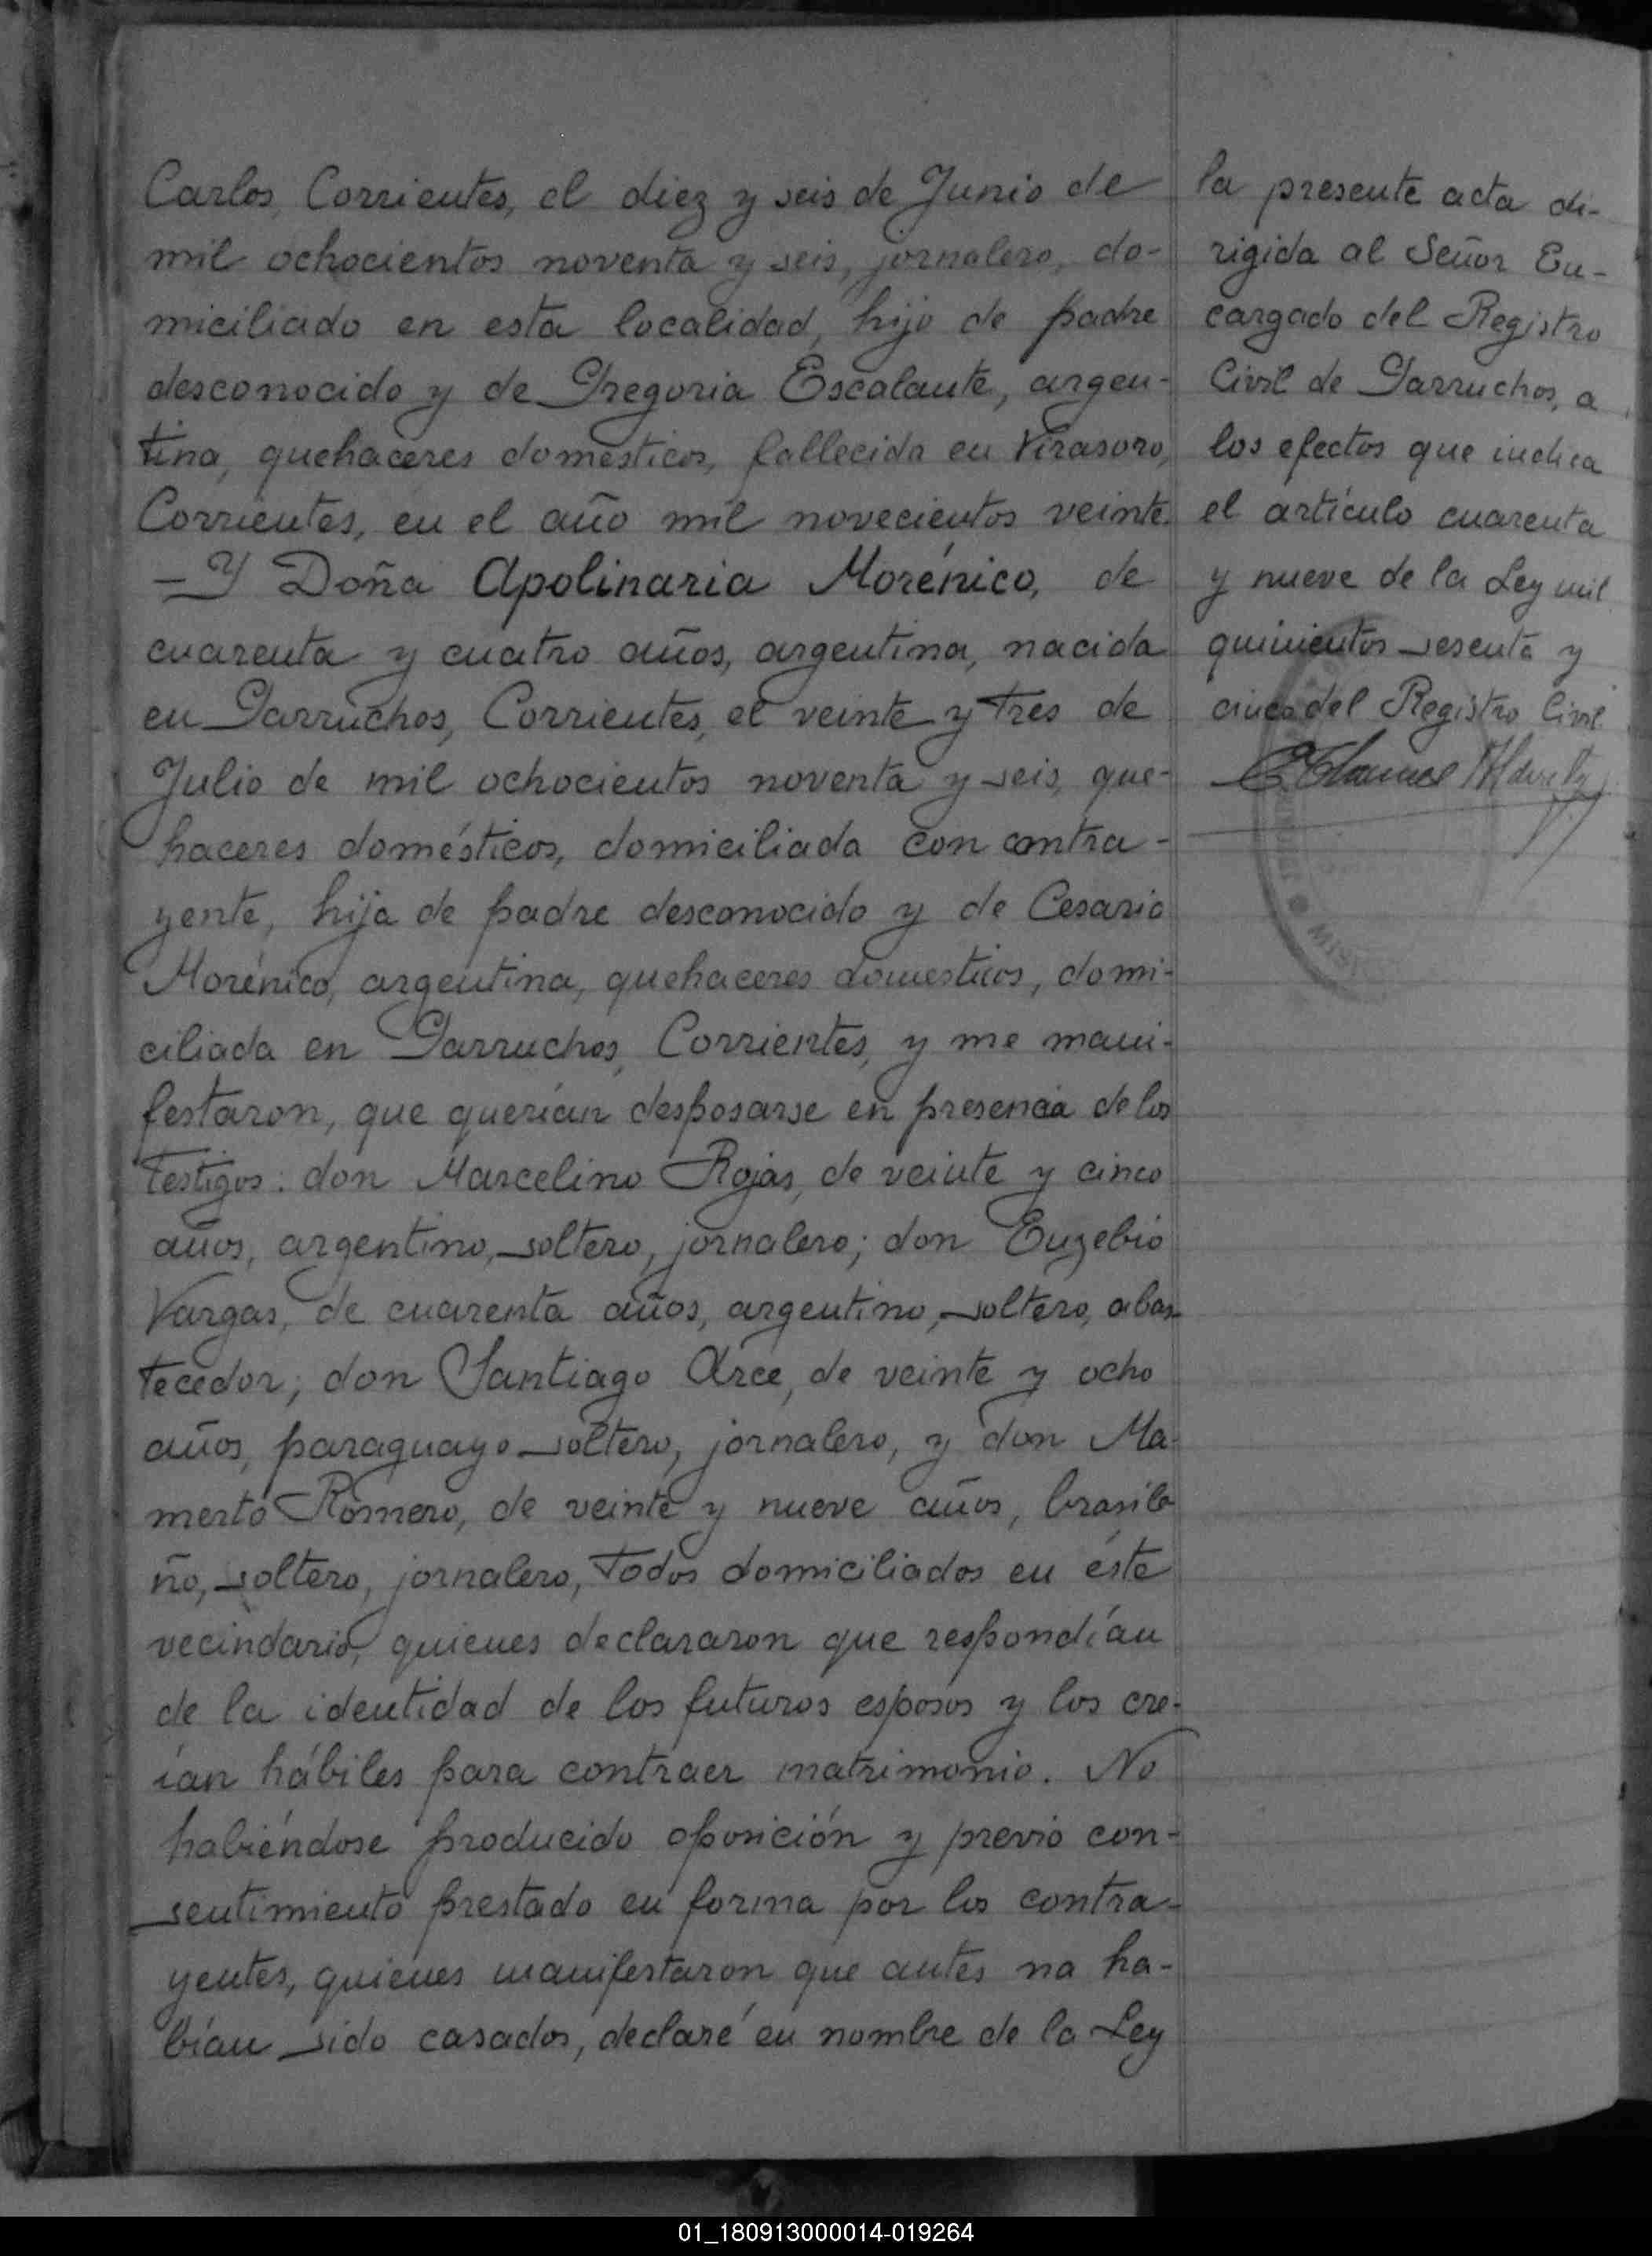 Carlos, Corrientes, el diez y seis de Junio de
mil ochocientos noventa y seis, jornalero, do-
miciliado en esta localidad, hijo de padre
desconocido y de Gregoria Escalante, argen-
tina, quehaceres domésticos, fallecida en Virasoro,
Corrientes, en el año mil novecientos veinte.
— Y Doña Apolinaria Morénico, de
cuarenta y cuatro años, argentina, nacida
en Garruchos, Corrientes, el veinte y tres de
Julio de mil ochocientos noventa y seis, que-
haceres domésticos, domiciliada con contra-
yente, hija de padre desconocido y de Cesaria
Morénico, argentina, quehaceres domésticos, domi-
ciliada en Garruchos, Corrientes, y me mani-
festaron, que querían desposarse en presencia de los
testigos: don Marcelino Rojas, de veinte y cinco
años, argentino, soltero, jornalero; don Euzebio
Vargas, de cuarenta años, argentino, soltero, abas-
tecedor; don Santiago Arce, de veinte y ocho
años, paraguayo soltero, jornalero, y don Ma-
merto Romero, de veinte y nueve años, brasile
ño, soltero, jornalero, todos domiciliados en éste
vecindario, quienes declararon que respondían
de la identidad de los futuros esposos y los cre-
ían hábiles para contraer matrimonio. No
habiéndose producido oposición y previo con-
sentimiento prestado en forma por los contra-
yentes, quienes manifestaron que antes na ha-
bían sido casados, declaré en nombre de la Ley
la presente acta di-
rigida al Señor En-
cargado del Registro
Civil de Garruchos, a
los efectos que indica
el artículo cuarenta
y nueve de la Ley mil
quinientos sesenta y
cinco del Registro Civil
01_180913000014-019264